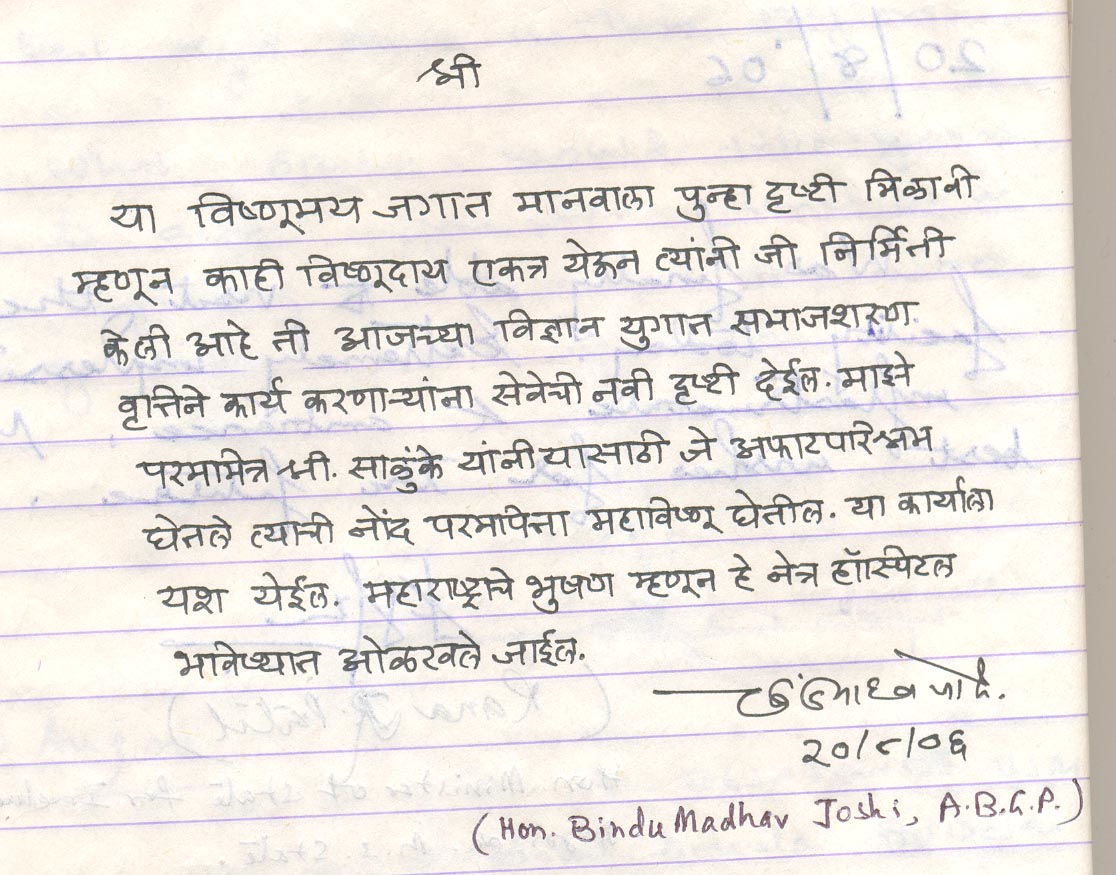 श्री
या विष्णूमय जगात मानवाला पुन्हा दृष्टी मिळावी
म्हणून काही विष्णूदाय एकत्र येऊन त्यांनी जी निर्मिती
केली आहे ती आजच्या विज्ञान युगात समाजशरण
वृत्तिने कार्य करणाऱ्यांना सेवेची नवी दृष्टी देईल. माझे
परममित्र श्री. साळुंके यांनी यासाठी जे अफाट परिश्रम
घेतले त्याची नोंद परमपिता महाविष्णू घेतील. या कार्याला
यश येईल. महाराष्ट्राचे भुषण म्हणून हे नेत्र हॉस्पिटल
भविष्यात ओळखले जाईल.
बिंदुमाधव जोशी.
२०/८/०६
(Hon. Bindu Madhav Joshi, A.B.G.P.)